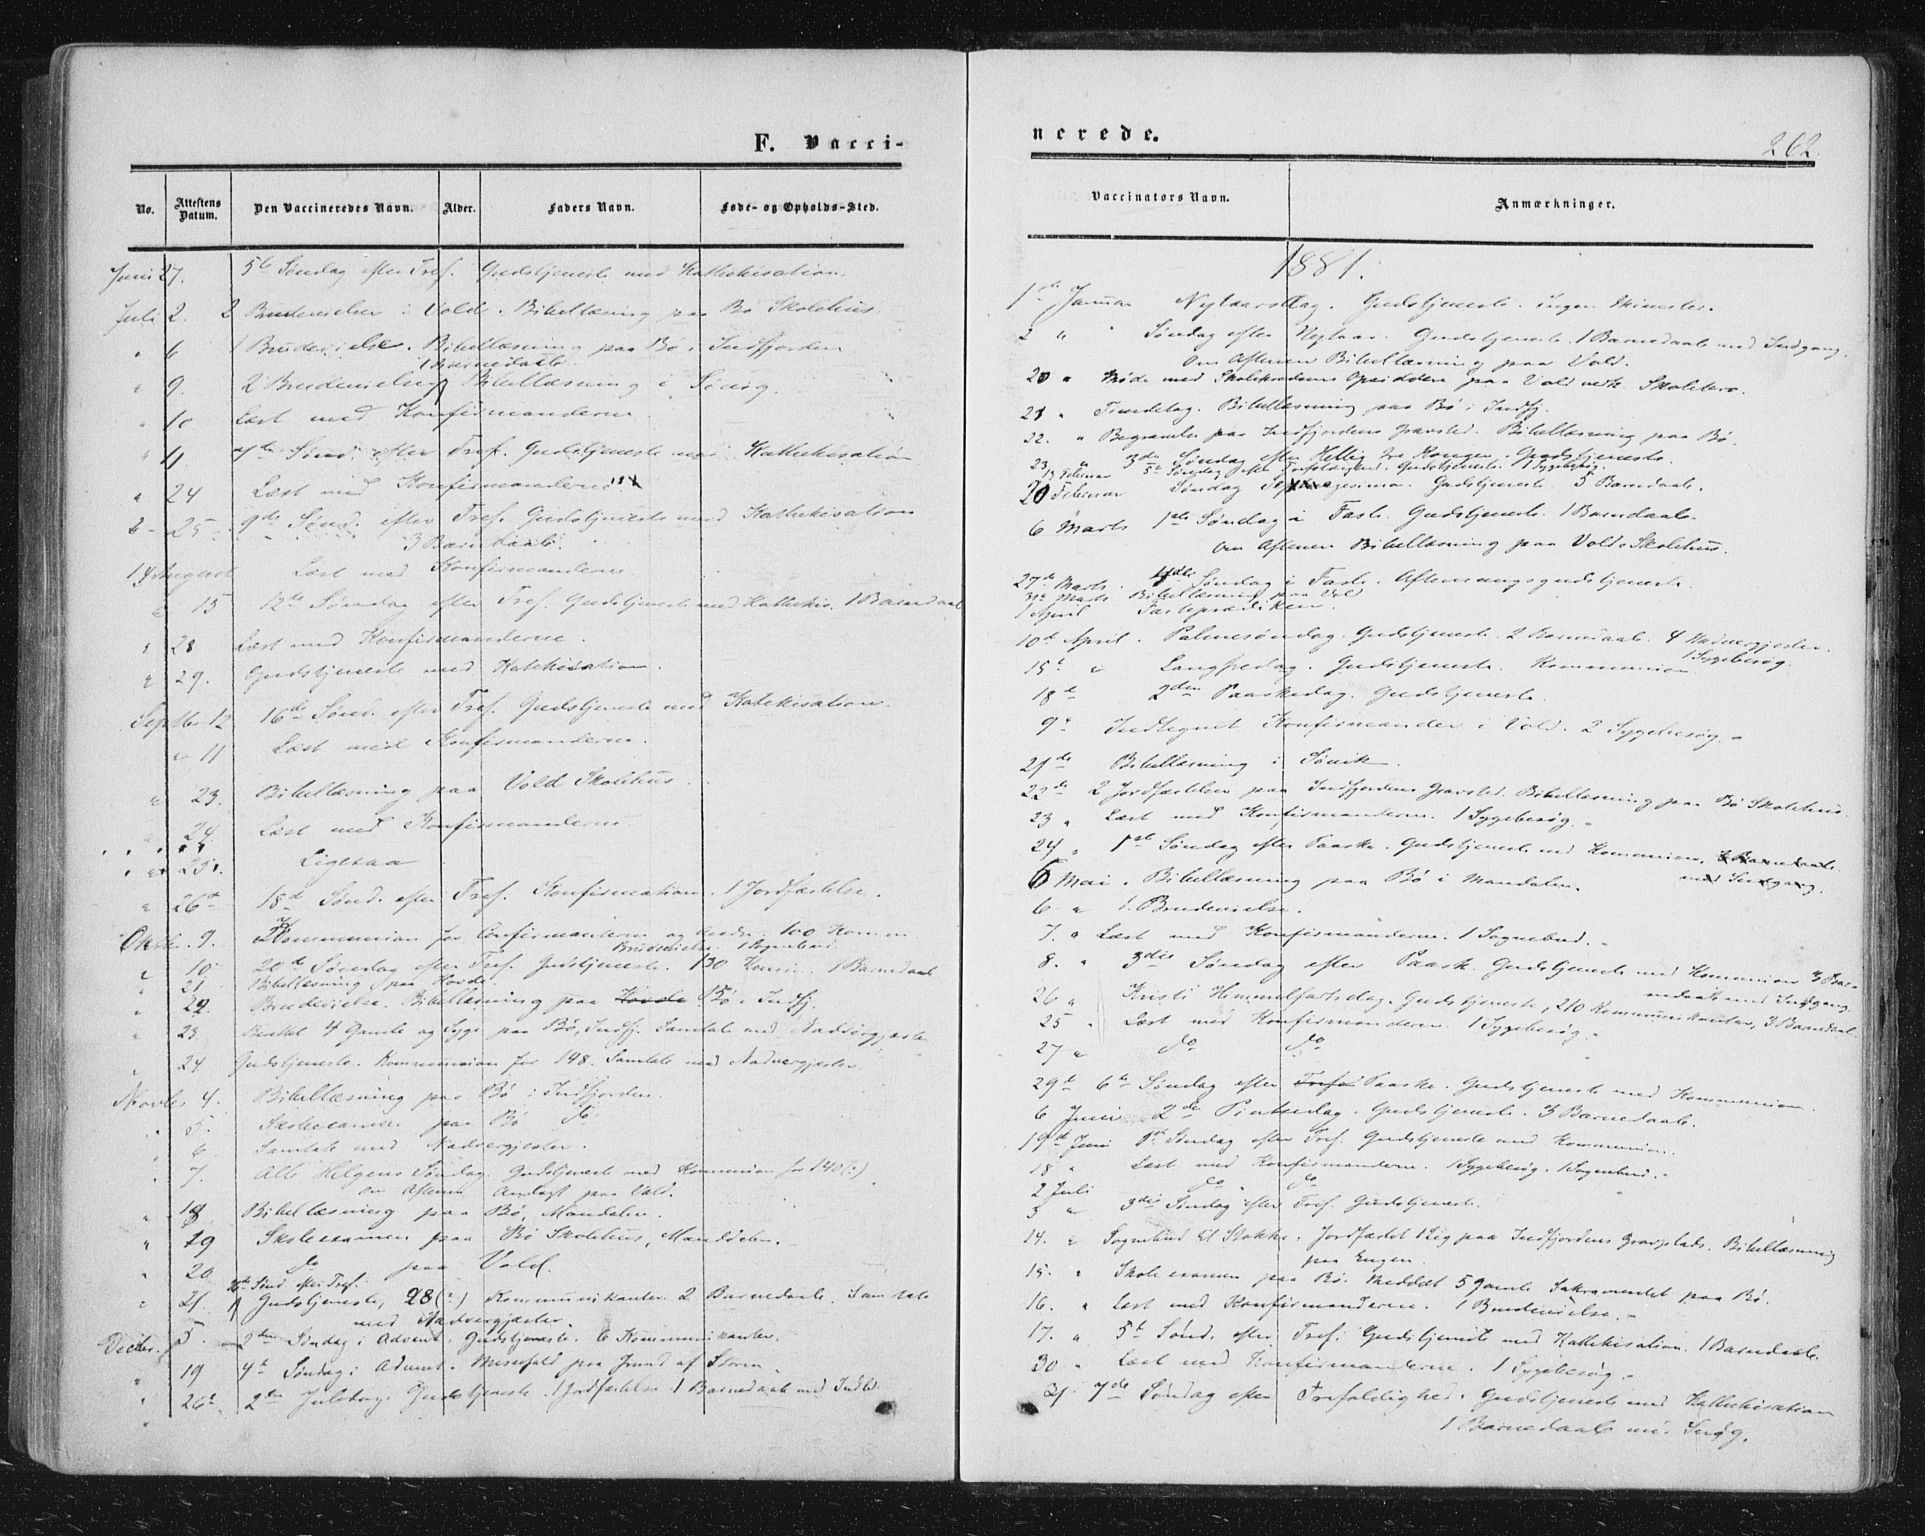 F. Vacci-
No.
Attestens Datum.
Den Vaccineredes Navn.
Alder.
Faders Navn.
Føde- og Opholds-Sted.
Juni 27. 5te Søndag efter Tref. Gudstjeneste med Kathekisation.
Juli 2. 2 Brudevielser i Vold. Bibellæsning paa Bø Skolehus.
" 6 1 Brudevielse. Bibellæsning paa Bø i Indfjorden
1 Barnedaab
" 9. 2 Brudevielser Bibellæsning i
" 10 Læst med Konfirmanderne.
" 11 7de Sønd. efter Tref. Gudstjeneste med Kathekisation
" 24 Læst med Konfirmanderne
" 25 9de Sønd. efter Tref. Gudstjeneste med Kathekisation
3 Barnedaab.
14 August Læst med Konfirmanderne.
" 15 12te Søndag efter Tref. Gudstjeneste med Kathekis. 1 Barnedaab
" 28 Læst med Konfirmanderne.
" 29. Gudstjeneste med Katekisation.
Septbr 12 16de Sønd. efter Tref. Gudstjeneste med Katekisation.
" 11 Læst med Konfirmanderne.
" 23. Bibellæsning paa Vold Skolehus.
" 24 Læst med Konfirmanderne
" 25. Ligesaa
" 26d 18d Sønd. efter Tref. Konfirmation. 1 Jordfæstelse.
Oktbr. 9. Kommunion for Confirmanterne og andre. 100 Komm
Brudevielse. 1 Sognebud.
" 10 20de Søndag efter Tref. Gudstjeneste. 130 1 Barnedaab
" 21 Bibellæsning paa Hovde.
" 22. Brudevielse. Bibellæsning paa Hovde Bø i Indfj.
" 23. 4 Gamle og Syge paa Bø, Indfj. Samtale med Nadvergjester
" 24 Gudstjeneste. Kommunion for 148. Samtale med Nadvergjester
Novbr 4. Bibellæsning paa Bø i Indfjorden.
" 5. Skoleexamen paa Bø do
" 6. Samtale med Nadvergjester.
" 7. Alle Helgens Søndag. Gudstjeneste med Kommunion for 140(?)
om Aftenen Andagt paa Vold.
" 18 Bibellæsning paa Bø, Mandalen.
" 19 Skoleexamen paa Bø Skolehus, Manddalen.
" 20 do paa Vold.
26de Sønd efter Tref.
" 21. Gudstjeneste, 28(?) Kommunikanter 2 Barnedaab. Samtale
med Nadvergjester.
Decbr. 5. 2den Søndag i Advent. Gudstjeneste. 6 Kommunikanter.
" 19 4de Søndag i Advent. Messefald paa Grund af Storm.
" 26d 2den Juledag. Gudstjeneste. 1 Jordfæstelse 1 Barnedaab med Indld.
nerede.
262.
Vaccinators Navn.
Anmærkninger.
1881.
1ste Januar Nytaarsdag. Gudstjeneste. ingen
2 " Søndag efter Nytaar. Gudstjeneste. 1 Barnedaab med Indgang.
Om Aftenen Bibellæsning paa Vold.
20 " Møde med Skolekredsens Opsiddere paa Vold vedk. Skolebro.
21 " Bibellæsning paa Bø i Indfj.
22. " Begravelse paa Indfjordens Gravsted. Bibellæsning paa Bø.
23 " 3de Søndag efter Hellig tre Konger. Gudstjeneste.
13 Februar 5te Søndag Gudstjeneste. 1 Sygebesøg.
20 Februar Søndag Gudstjeneste 5 Barnedaab.
6 Marts 1ste Søndag i Faste. Gudstjeneste. 1 Barnedaab
Om Aftenen Bibellæsning paa Volds Skolehus.
27de Marts. 4de Søndag i Faste. Aftensangsgudstjeneste.
31te Marts Bibellæsning paa Vold
1 April Fasteprædiken.
10d April. Palmesøndag. Gudstjeneste. 2 Barnedaab. 4 Nadvergjester.
1 Sygebesøg.
15d " Langfredag. Gudstjeneste. Kommunion
18d 2den Paaskedag. Gudstjeneste.
9d Indtegnet Konfirmander i Vold. 2 Sygebesøg.
21de Bibellæsning i
22de 2 Jordfæstelser paa Indfjordens Gravsted. Bibellæsning paa Bø Skolehus.
23 " Læst med Konfirmanderne. 1 Sygebesøg.
24 " 1ste Søndag efter Paaske. Gudstjeneste med Kommunion. 3 Barnedaab
med Indgang.
6 Mai. Bibellæsning paa Bø i Mandalen.
6 " 1. Brudevielse.
7. " Læst med Konfirmanderne. 1 Sognebud.
8. " 3die Søndag efter Paaske. Gudstjeneste med Kommunion 3 Bar-
nedaab med Indgang.
26 " Kristi Himmelfartsdag. Gudstjeneste, 210 Kommunikanter, 3 Barnedaab.
25 " Læst med Konfirmanderne. 1 Sygebesøg.
27 " do do
29de 6te Søndag efter Paaske. Gudstjeneste med Kommunion.
6 Juni 2den Pintsedag. Gudstjeneste. 3 Barnedaab.
19d Juni 1ste Søndag efter Tref. Gudstjeneste med Kommunion.
18 " Læst med Konfirmanderne. 1 Sygebesøg. 1 Sognebud.
2 Juli do do
3 " 3die Søndag efter Tref. Gudstjeneste.
14. " Sognebud til Stokke. Jordfæstet 1 Lig paa Indfjordens Gravplads. Bibellæsning
paa Engen.
15. " Skoleexamen paa Bø. Meddelt 5 Gamle Sakramentet paa Bø.
16. " Læst med Konfirmanderne. 1 Brudevielse.
17. " 5te Sønd. efter Tref. Gudstjeneste med Kathekisation. 1 Barnedaab.
30 " Læst med Konfirmanderne. 1 Sygebesøg.
31. 7de Søndag efter Trefoldighed. Gudstjeneste med Kathekisation
1 Barnedaab med